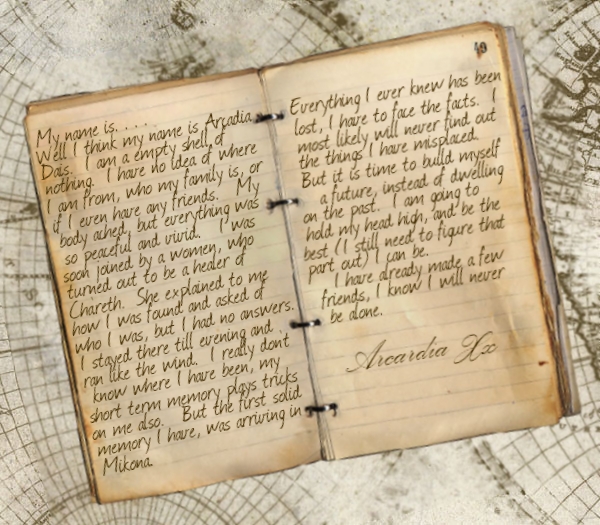 My name is. . . . .
Well I think my name is Arcadia
Dais. I am a empty shell of
nothing. I have no idea of where
I am from, who my family is, or
if I even have any friends. My
body ached, but everything was
so peaceful and vivid. I was
soon joined by a women, who
turned out to be a healer of
Chareth. She explained to me
how I was found and asked of
who I was, but I had no answers.
I stayed there till evening and
ran like the wind. I really don't
know where I have been, my
short term memory plays tricks
on me also. But the first solid
memory I have, was arriving in
Mikona.
49
Everything I ever knew has been
lost, I have to face the facts. I
most likely will never find out
the things I have misplaced.
But it is time to build myself
a future, instead of dwelling
on the past. I am going to
hold my head high, and be the
best (I still need to figure that
part out) I can be.
I have already made a few
friends, I know I will never
be alone.
Arcardia Xx